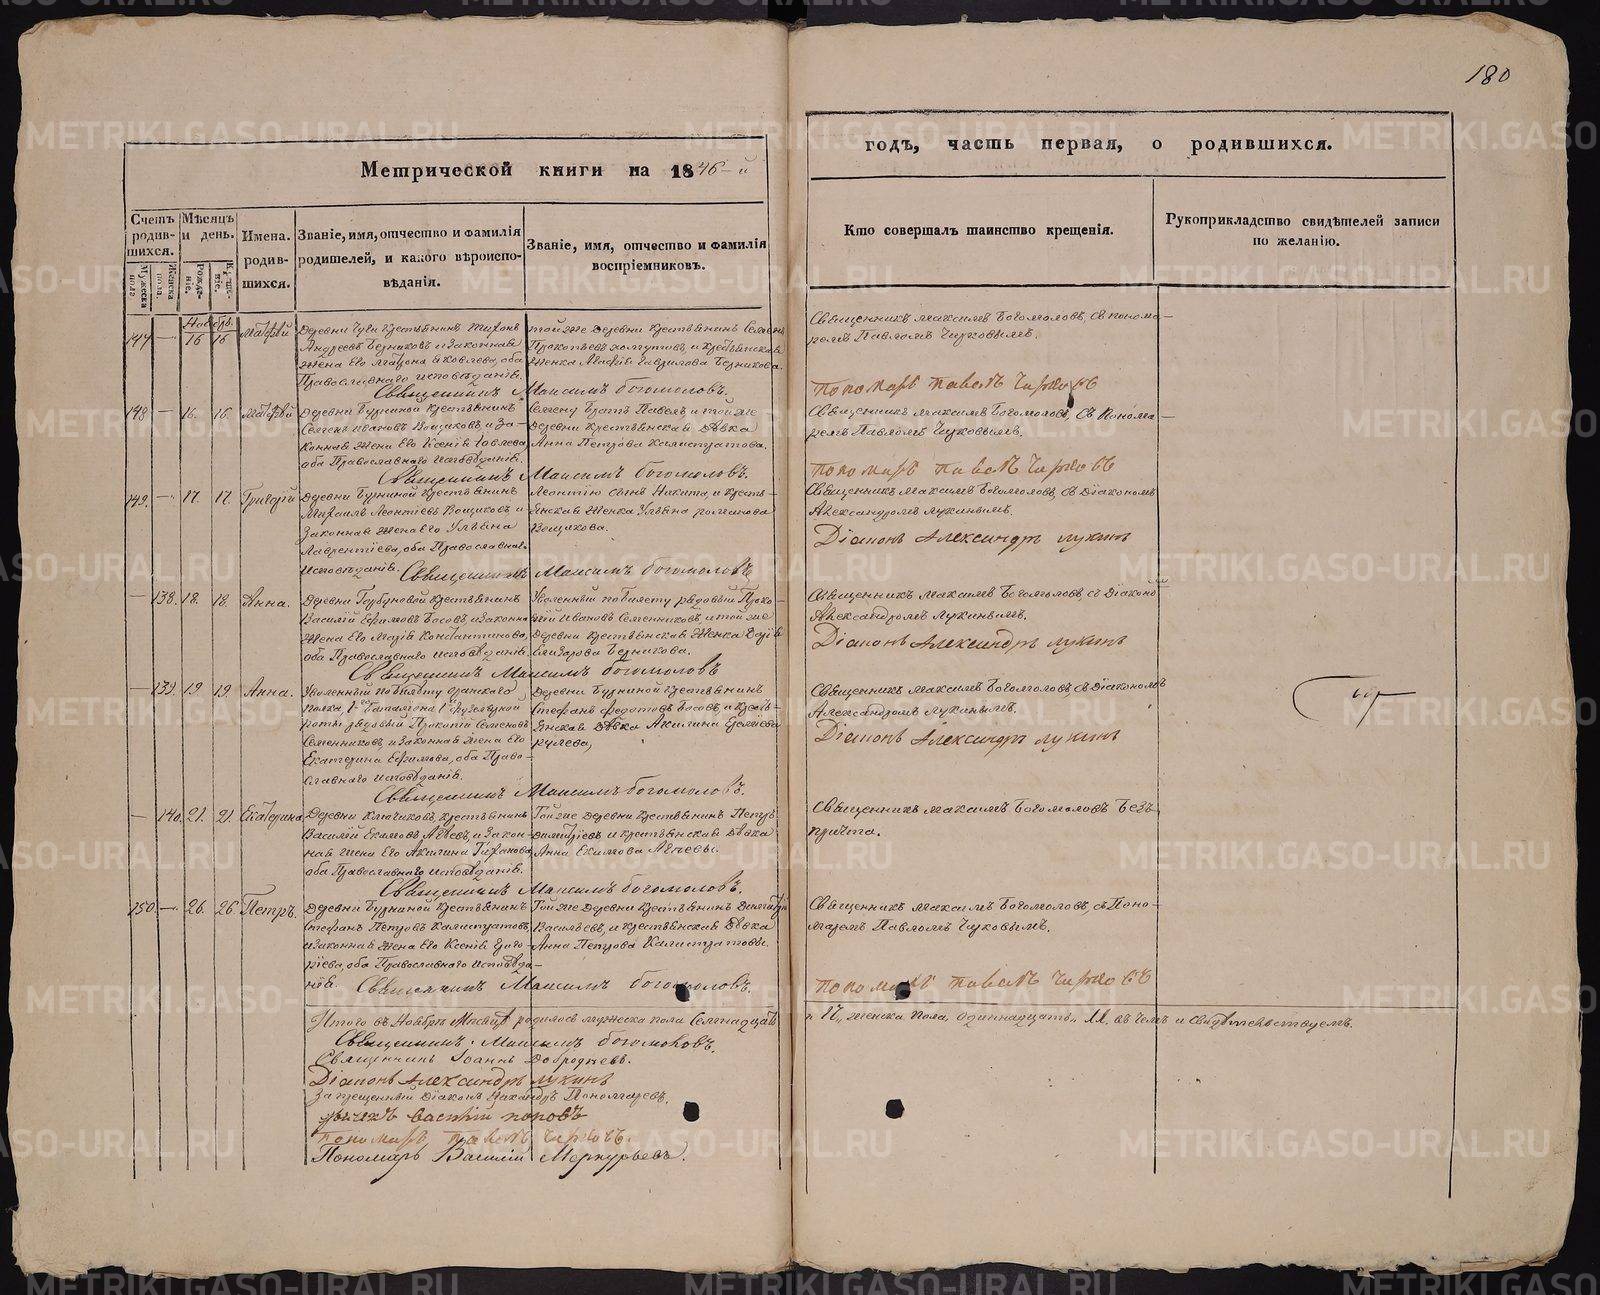 180
Метрической книги на 1846-й
годъ, часть первая, о родившихся.
Счетъ родив-
шихся.
Мужеска пола.
Женска пола.
Мѣсяцъ и день.
Рожде-
ніе.
Креще-
ніе.
Имена.
родив-
шихся.
Званіе, имя, отчество и фамилія
родителей, и какого вѣроиспо-
вѣданія.
Званіе, имя, отчество и фамилія
воспріемниковъ.
Кто совершалъ таинство крещенія.
Рукоприкладство свидѣтелей записи
по желанію.
Ноябрь.
147
—
16
16
Матфей
Деревни крестьянинъ
Андреевъ Берниковъ и законная
жена его Яковлева, оба
Православнаго исповѣданія.
той же деревни крестьянинъ Семенъ
Прокопьевъ и крестьянская
женка Гаврилова Берникова.
Священникъ Максимъ Богомоловъ, съ понома-
ремъ Павломъ
Священникъ Максимъ Богомоловъ.
пономарь павелъ
148
—
16.
16
Матфей
Деревни Бурниной крестьянинъ
Семенъ Ивановъ Вощиковъ и за-
конная жена его Ксенія
оба Православнаго исповѣданія.
Семену братъ Павелъ и той же
деревни крестьянская дѣвка
Анна Петрова Калистратова.
Священникъ Максимъ Богомоловъ, съ Понома-
ремъ Павломъ
Священникъ Максимъ Богомоловъ.
пономарь павелъ
149.
—
17.
17.
Григорій
Деревни Бурниной крестьянинъ
Михаилъ Леонтіевъ Вощиковъ и
законная жена его Ульяна
Лаврентіева, оба Православнаго
исповѣданія.
Леонтію сынъ Никита, и кресть-
янская женка Ульяна Романова
Вощикова.
Священникъ Максимъ Богомоловъ, съ Діакономъ
Александромъ Лукинымъ.
Діаконъ Александръ Лукинъ
Священникъ Максимъ Богомоловъ
—
138.
18.
18.
Анна.
Деревни Горбуновой крестьянинъ
Василій Ефимовъ Басовъ, и законная
жена его Марія Константинова,
оба Православнаго исповѣданія.
Уволенный по билету рядовый Проко-
пій Ивановъ Семенниковъ, и той же
деревни крестьянская женка Дарія
Елизарова Берникова.
Священникъ Максимъ Богомоловъ, съ Діакономъ
Александромъ Лукинымъ.
Діаконъ Александръ Лукинъ
Священникъ Максимъ Богомоловъ
—
139.
19
19
Анна.
Уволенный по билету
полка, 1го баталіона 1й фузелерной
роты рядовый Прокопій Семеновъ
Семенниковъ и законная жена его
Екатерина Ефимова, оба Право-
славнаго исповѣданія.
Деревни Бурниной крестьянинъ
Стефанъ Федотовъ Басовъ и кресть-
янская дѣвка Акилина
Священникъ Максимъ Богомоловъ, съ Діакономъ
Александромъ Лукинымъ.
Діаконъ Александръ Лукинъ
Священникъ Максимъ Богомоловъ.
—
140.
21.
21.
Екатерина
Деревни Ключиковъ, крестьянинъ
Василій Екимовъ и закон-
ная жена его Акилина
оба Православнаго исповѣданія.
Той же деревни крестьянинъ Петръ
Димитріевъ и крестьянская дѣвка
Анна Екимова
Священникъ Максимъ Богомоловъ безъ
причта.
Священникъ Максимъ Богомоловъ.
150.
—
26.
26.
Петръ.
Деревни Бурниной крестьянинъ
Стефанъ Петровъ Калистратовъ,
и законная жена его Ксенія Григо-
рьева, оба Православнаго исповѣда-
нія.
Той же деревни крестьянинъ
Васильевъ, и крестьянская дѣвка
Анна Петрова Калистратовы.
Священникъ Максимъ Богомоловъ, съ Поно-
маремъ Павломъ
Священникъ Максимъ Богомоловъ.
пономарь павелъ
Итого въ Ноябрѣ Мѣсяцѣ родилось мужеска пола Семнадцать
17, женска пола, одиннадцать, 11. въ чемъ и свидѣтельствуемъ.
Священникъ Максимъ Богомоловъ.
Священникъ Іоаннъ
Діаконъ Александръ Лукинъ
Запрещенный Діаконъ Пономаревъ.
дьячекъ василій поповъ
пономарь, павелъ
Пономарь Василій Меркурьевъ.
METRIKI.GASO-URAL.RU